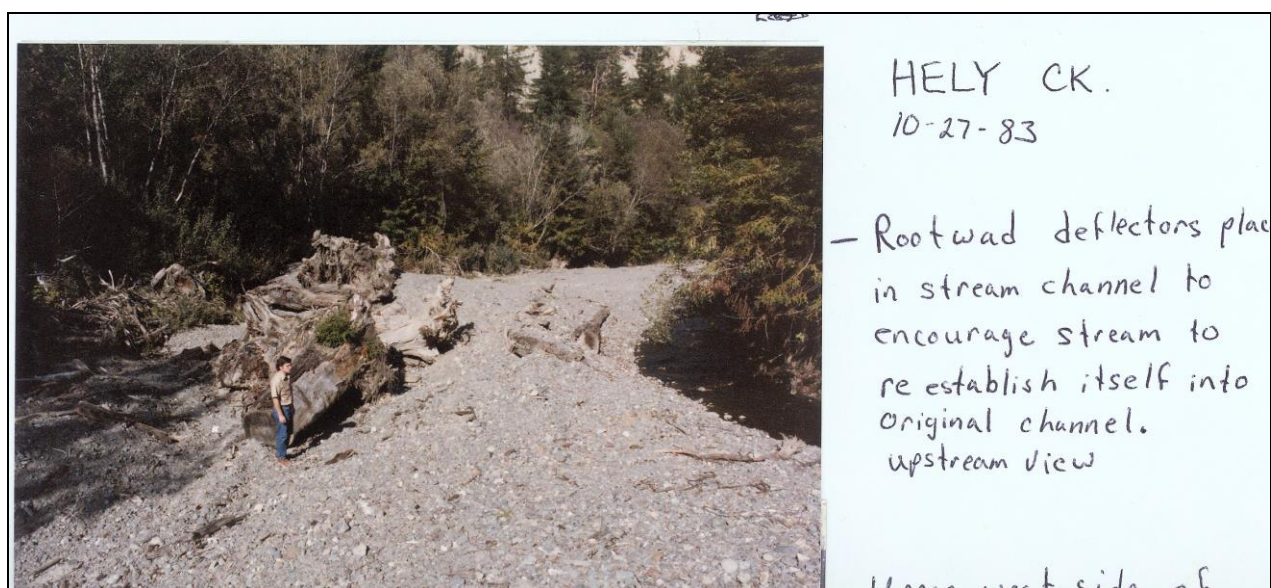 HELY CK.
10-27-83
- Rootwad deflectors plac
in stream channel to
encourage stream to
re establish itself into
original channel.
upstream view
west side of